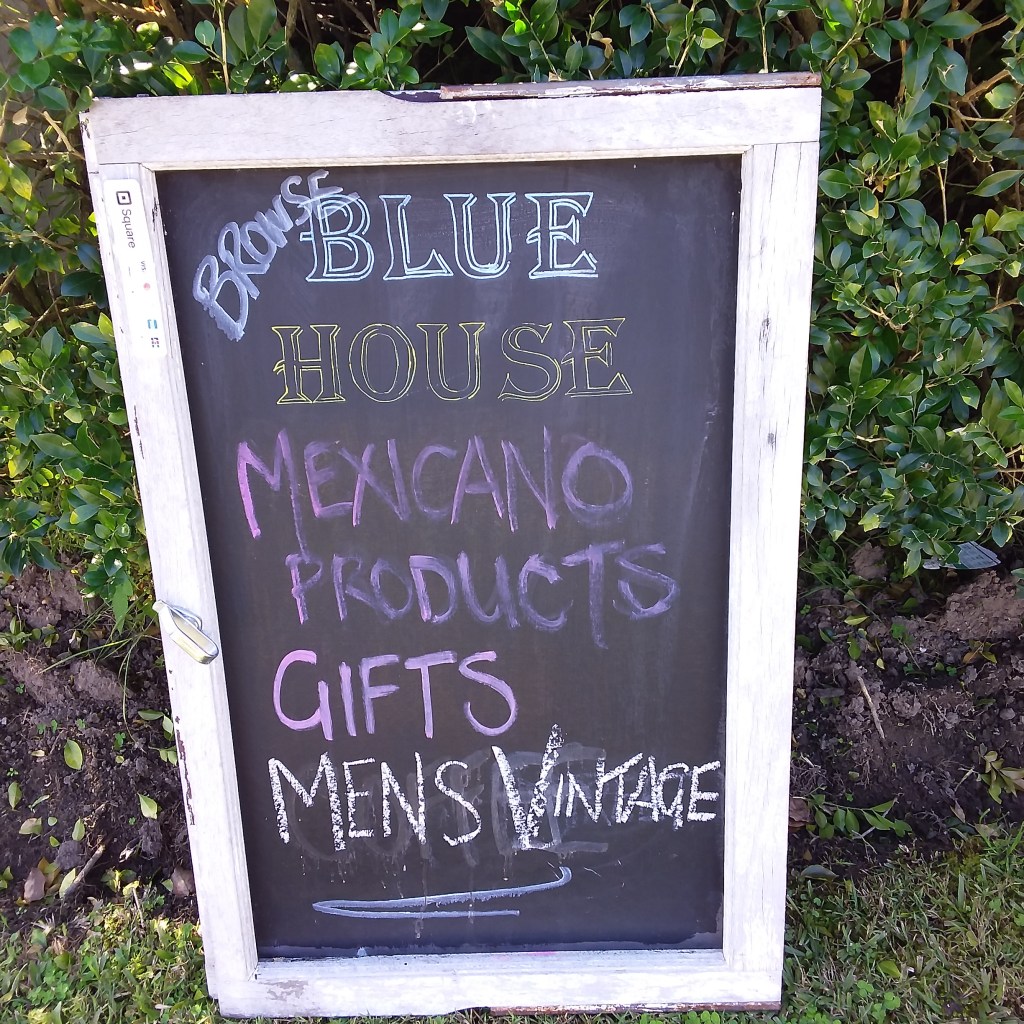 BROWSE
BLUE
HOUSE
MEXICANO
PRODUCTS
GIFTS
MENS VINTAGE
Square